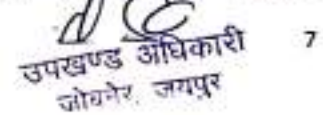 उपखण्ड अधिकारी 7
जोबनेर, जयपुर